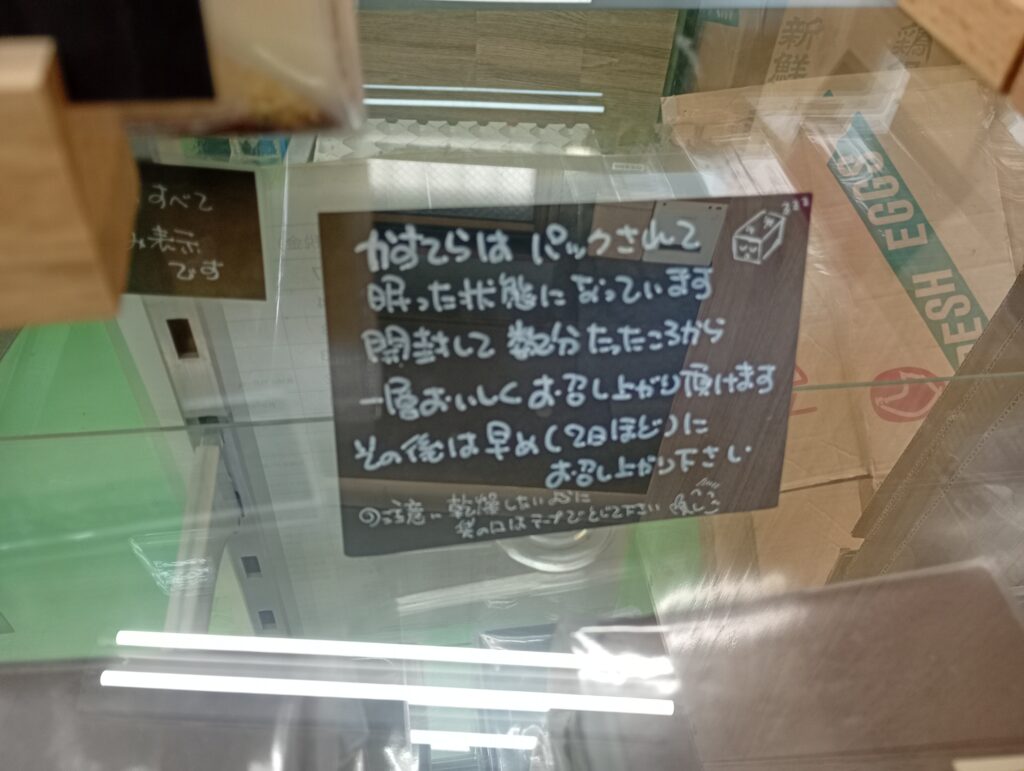 新鮮
FRESH EGGS
すべて
表示
です
かすてらは パックされて
眠った状態になっています
開封して 数分たったころから
一層おいしくお召し上がり頂けます
その後は早め(2日ほど)に
お召し上がり下さい
ご注意 乾燥しないように
袋の口はテープでとじて下さい